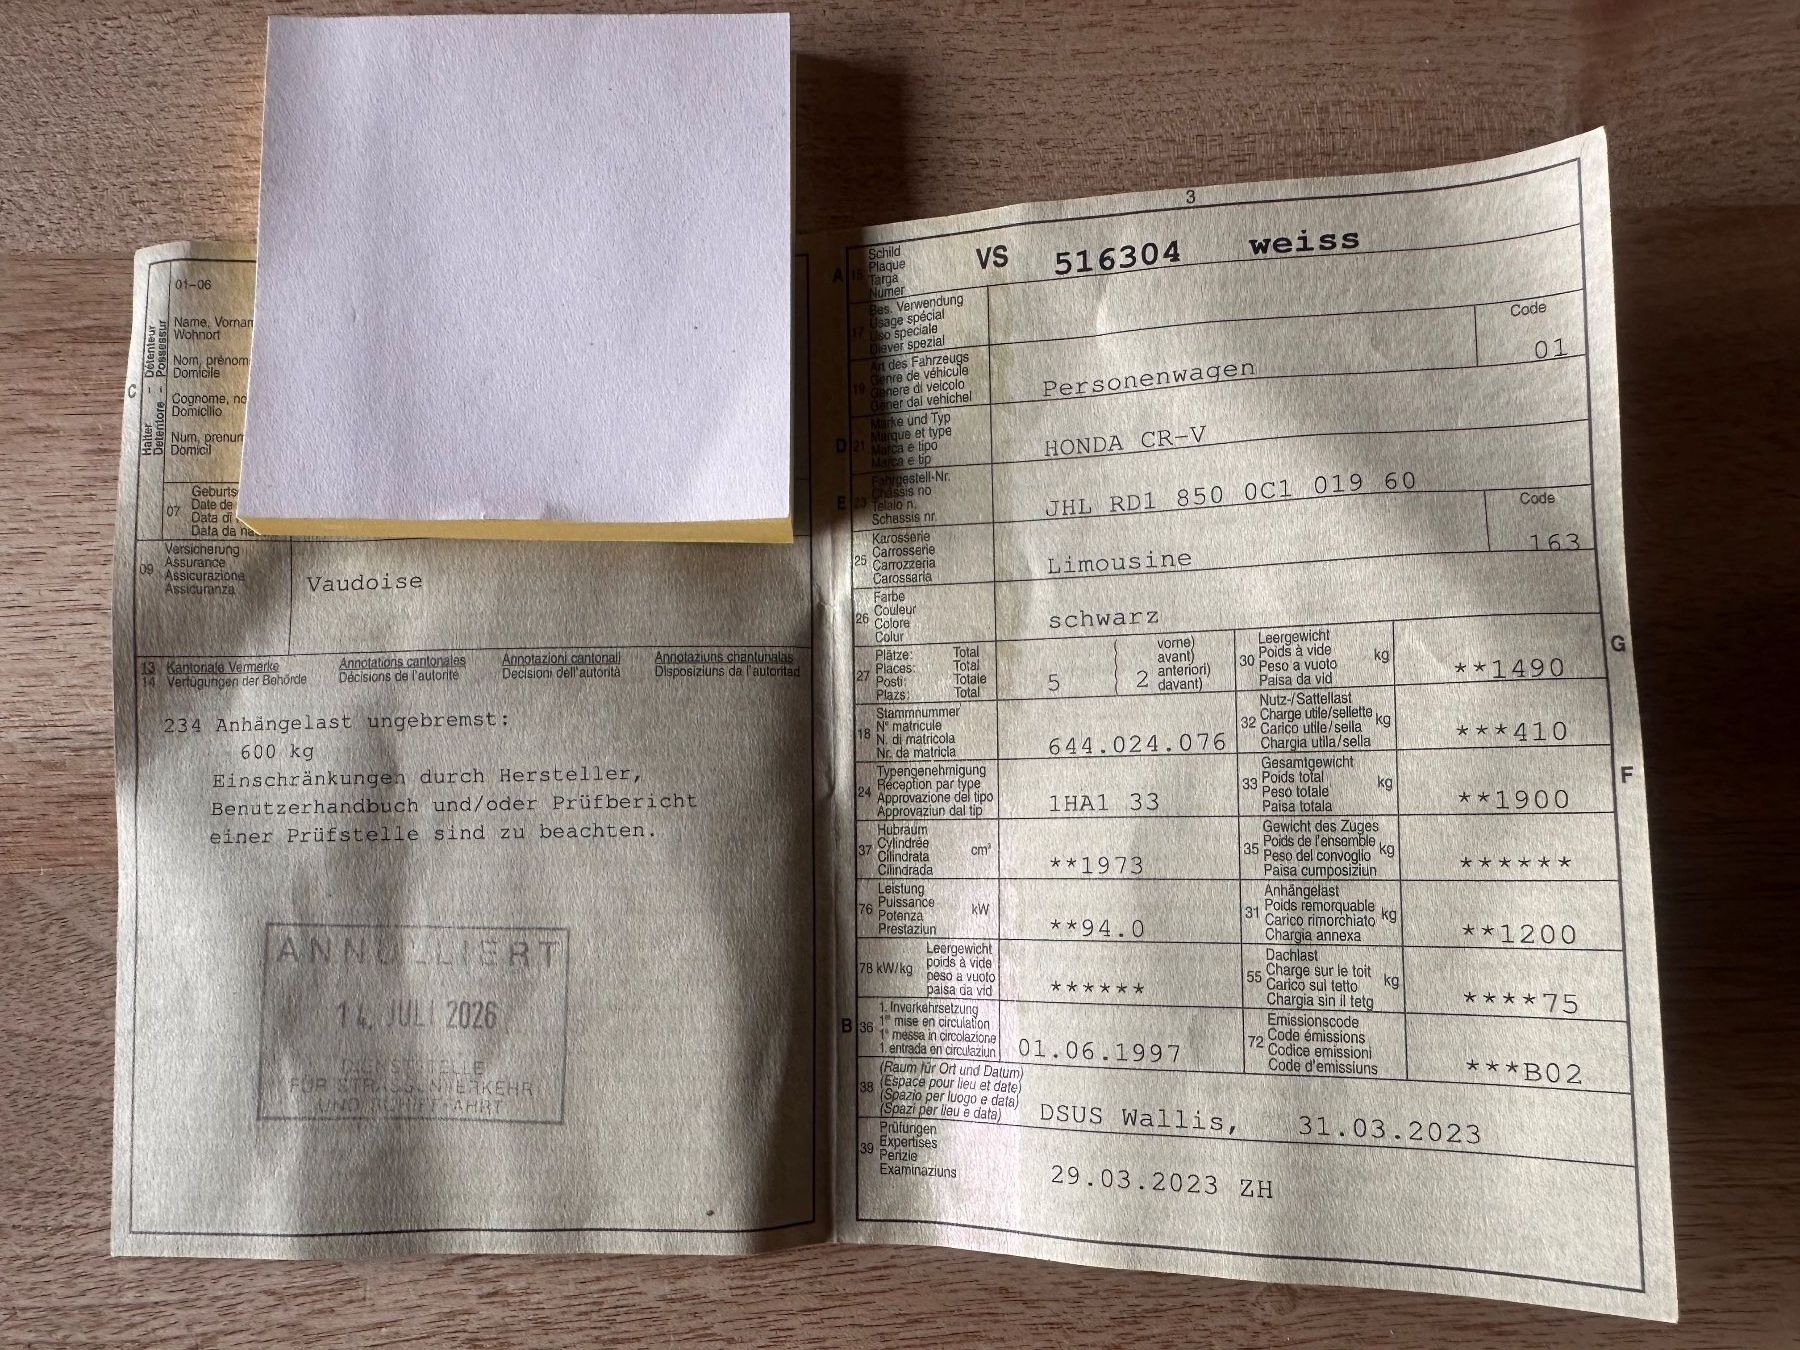 01-06
Halter - Détenteur
Detentore - Possessur
C
Name, Vornam
Wohnort
Nom, prénom
Domicile
Cognome, no
Domicilio
Num, prenum
Domicil
07
Geburts
Date de
Data di
Data da na
09
Versicherung
Assurance
Assicurazione
Assicuranza
Vaudoise
13 Kantonale Vermerke Annotations cantonales Annotazioni cantonali Annotaziuns chantunalas
14 Verfügungen der Behörde Décisions de l'autorité Decisioni dell'autorità Disposiziuns da l'autoritad
234 Anhängelast ungebremst:
600 kg
Einschränkungen durch Hersteller,
Benutzerhandbuch und/oder Prüfbericht
einer Prüfstelle sind zu beachten.
ANNULLIERT
14. JULI 2026
DIENSTSTELLE
FÜR STRASSENVERKEHR
UND SCHIFFFAHRT
3
A 15
Schild
Plaque
Targa
Numer
VS 516304 weiss
17
Bes. Verwendung
Usage spécial
Uso speciale
Diever spezial
19
Art des Fahrzeugs
Genre de véhicule
Genere di veicolo
Gener dal vehichel
Personenwagen
Code
01
D 21
Marke und Typ
Marque et type
Marca e tipo
Marca e tip
HONDA CR-V
E 23
Fahrgestell-Nr.
Châssis no
Telaio n.
Schassis nr.
JHL RD1 850 0C1 019 60
25
Karosserie
Carrosserie
Carrozzeria
Carossaria
Limousine
Code
163
26
Farbe
Couleur
Colore
Colur
schwarz
27
Plätze: Total
Places: Total
Posti: Totale
Plazs: Total
5
2
vorne)
avant)
anteriori)
davant)
30
Leergewicht
Poids à vide
Peso a vuoto
Paisa da vid
kg
**1490
G
18
Stammnummer
N° matricule
N. di matricola
Nr. da matricla
644.024.076
32
Nutz-/Sattellast
Charge utile/sellette
Carico utile/sella
Chargia utila/sella
kg
***410
24
Typengenehmigung
Réception par type
Approvazione del tipo
Approvaziun dal tip
1HA1 33
33
Gesamtgewicht
Poids total
Peso totale
Paisa totala
kg
**1900
F
37
Hubraum
Cylindrée
Cilindrata
Cilindrada
cm³
**1973
35
Gewicht des Zuges
Poids de l'ensemble
Peso del convoglio
Paisa cumposiziun
kg
******
76
Leistung
Puissance
Potenza
Prestaziun
kW
**94.0
31
Anhängelast
Poids remorquable
Carico rimorchiato
Chargia annexa
kg
**1200
78 kW/kg
Leergewicht
poids à vide
peso a vuoto
paisa da vid
******
55
Dachlast
Charge sur le toit
Carico sul tetto
Chargia sin il tetg
kg
****75
B 36
1. Inverkehrsetzung
1re mise en circulation
1a messa in circolazione
1. entrada en circulaziun
01.06.1997
72
Emissionscode
Code émissions
Codice emissioni
Code d'emissiuns
***B02
38
(Raum für Ort und Datum)
(Espace pour lieu et date)
(Spazio per luogo e data)
(Spazi per lieu e data)
DSUS Wallis, 31.03.2023
39
Prüfungen
Expertises
Perizie
Examinaziuns
29.03.2023 ZH